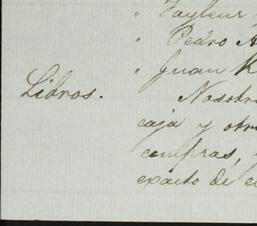 " Tayleur
" Pedro A
" Juan K
Libros. Nosotro
caja y otro
compras,
exacto de c